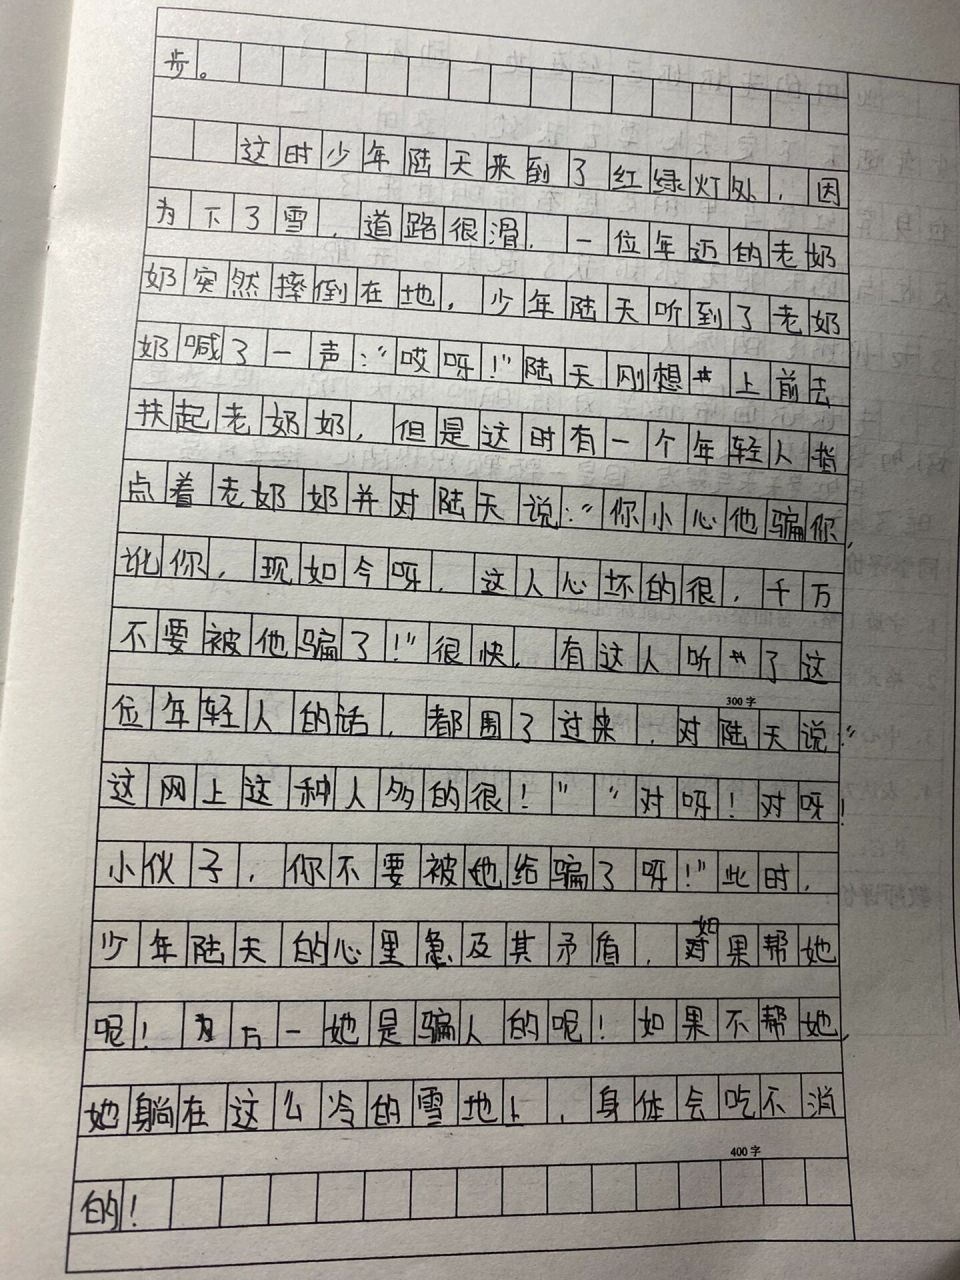 步。
这时少年陆天来到了红绿灯处，因
为下了雪，道路很滑，一位年迈的老奶
奶突然摔倒在地，少年陆天听到了老奶
奶喊了一声：“哎呀！”陆天刚想上前去
扶起老奶奶，但是这时有一个年轻人指
点着老奶奶并对陆天说：“你小心他骗你，
讹你，现如今呀，这人心坏的很，千万
不要被他骗了！”很快，有这人听了这
300字
位年轻人的话，都围了过来，对陆天说“
这网上这种人多的很！”“对呀！对呀！
小伙子，你不要被她给骗了呀！”此时，
少年陆天的心里急及其矛盾，如果帮她
呢！万一她是骗人的呢！如果不帮她，
她躺在这么冷的雪地上，身体会吃不消
400字
的！